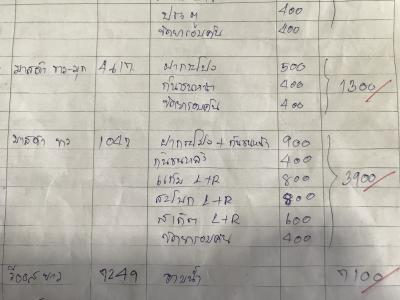 ประตู 400
ขัดยารอบคัน 400
มาสด้า ขาว-มุก 4617 ฝากระโปง 500
กันชนหน้า 400 1300
ขัดยารอบคัน 400
มาสด้า ขาว 1047 ฝากระโปง + กันชนหน้า 900
กันชนหลัง 400
แก้ม L+R 800 3900
สะโพก L+R 800
สเกิต L+R 600
ขัดยารอบคัน 400
ขาว 7249 7100